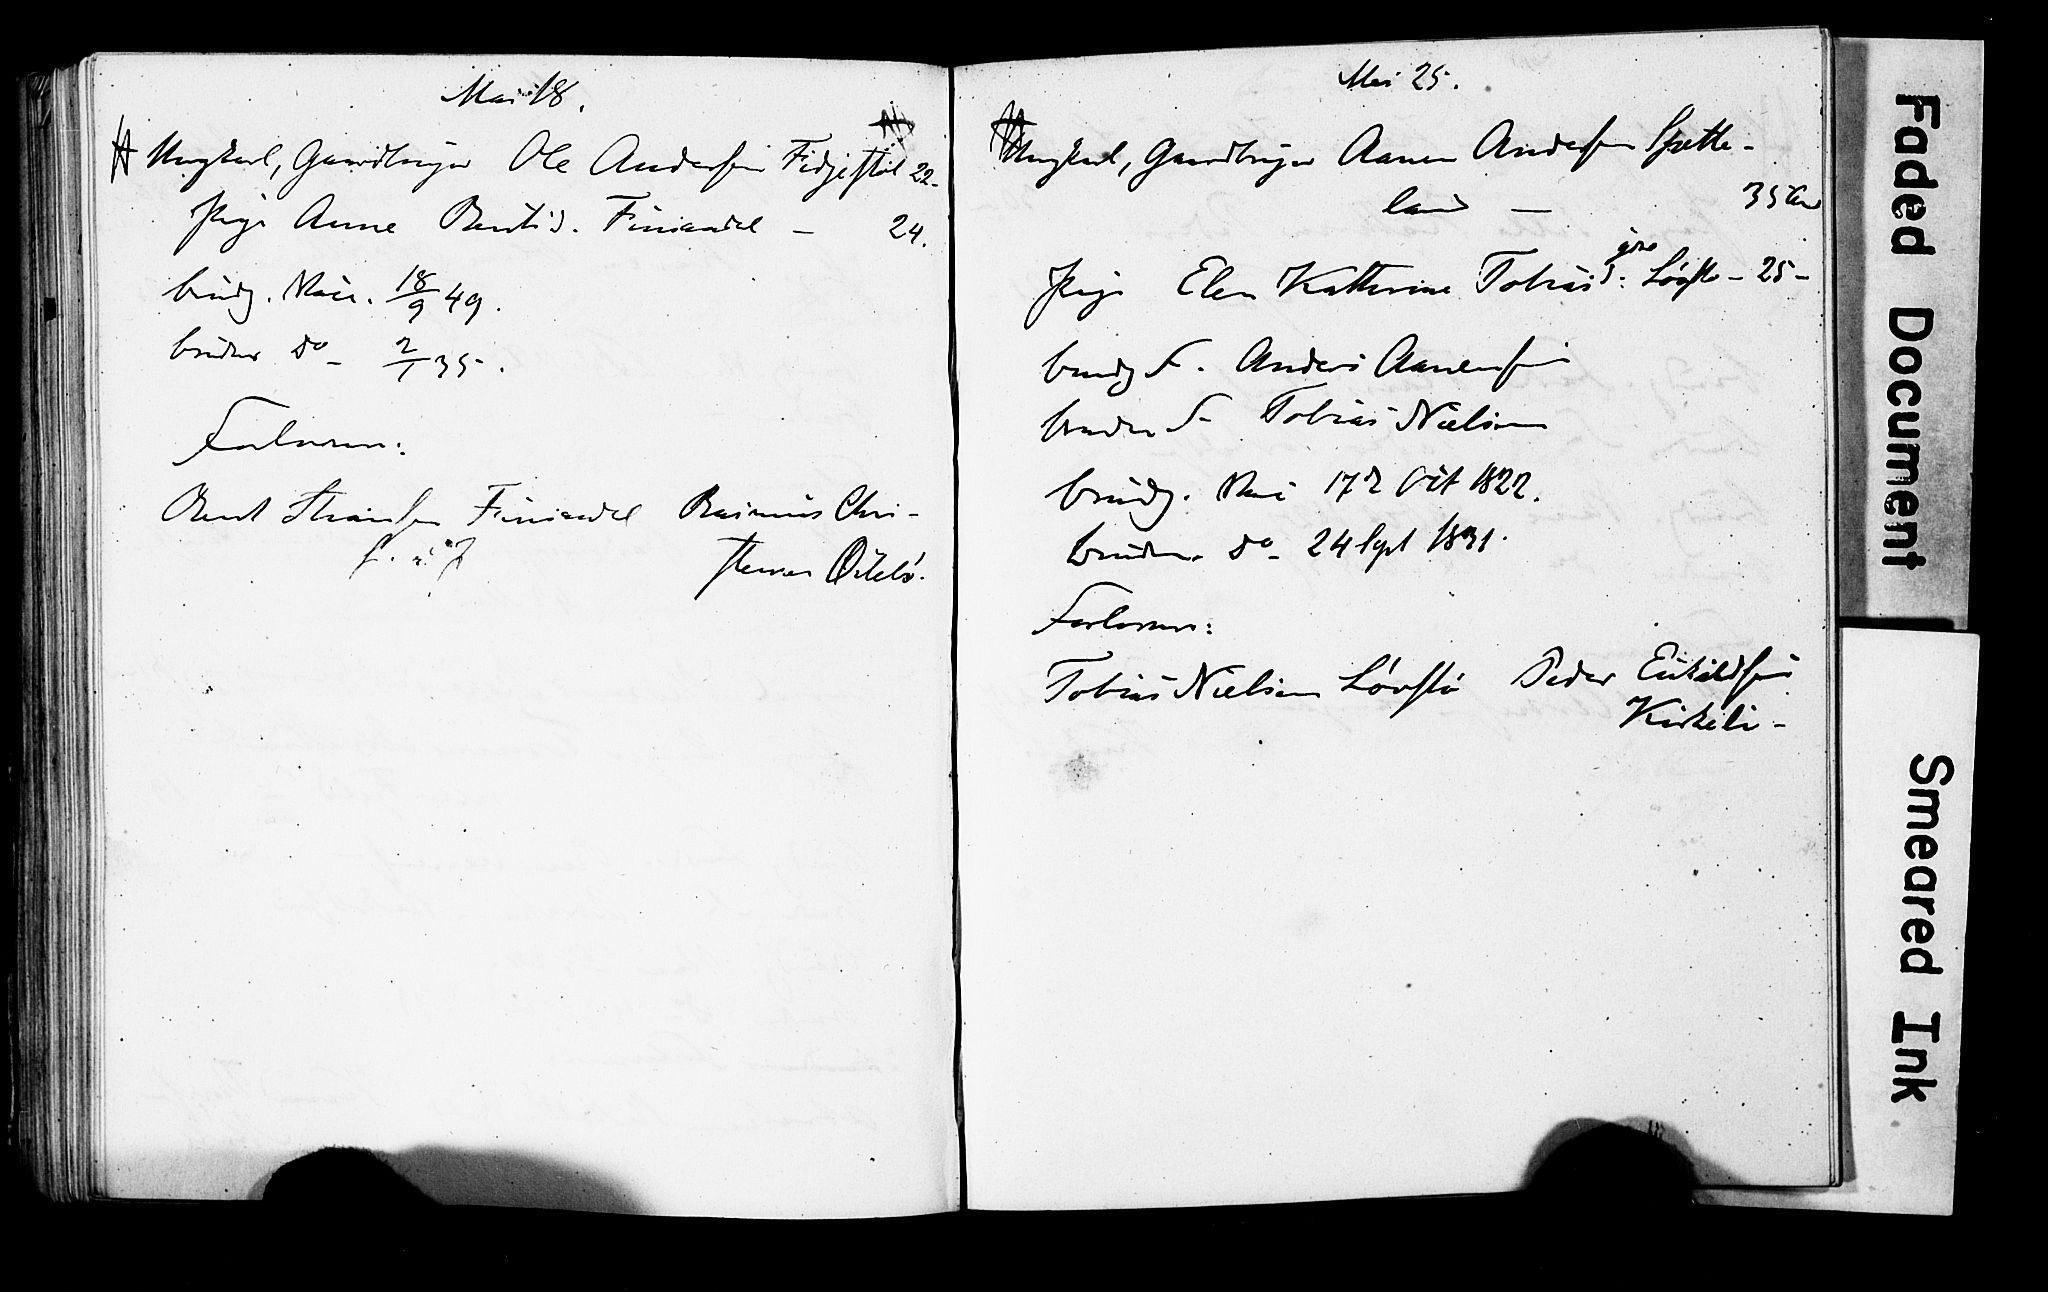 Mai 18.
Ungkarl, Gaardbruger Ole Andersen Fidjestøl 22-
Pige Anne Bentsd. Finsadal - 24.
brudg. Vacc. 18/9 49.
bruden do - 2/7 35.
Forlovere:
Bent Finsadal Rasmus Chri-
stensen
Mai 25.
Ungkarl, Gaardbruger Aanen Andersen Spette-
land - 35 Aar
Pige Elen Kathrine Tobiasd: Løvstø - 25-
brudg F. Anders Aanensen
bruden F. Tobias Nielsen
brudg. Vacc 17d Oct 1822.
Bruden do - 24 Sept 1831.
Forlovere:
Tobias Nielsen Løvstø Peder
Faded Document
Smeared Ink